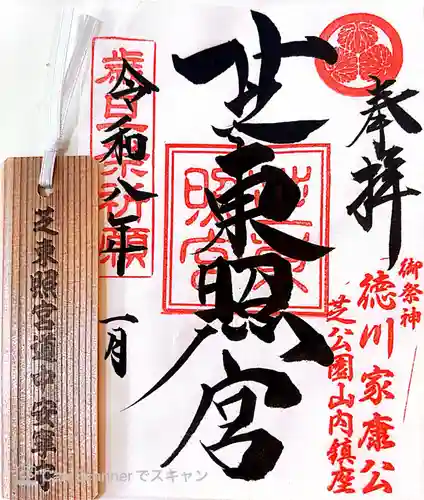 奉拝
御祭神
徳川家康公
芝公園山内鎮座
芝東照宮
芝東照宮
令和八年
一月
芝東照宮道中安寧守
でスキャン